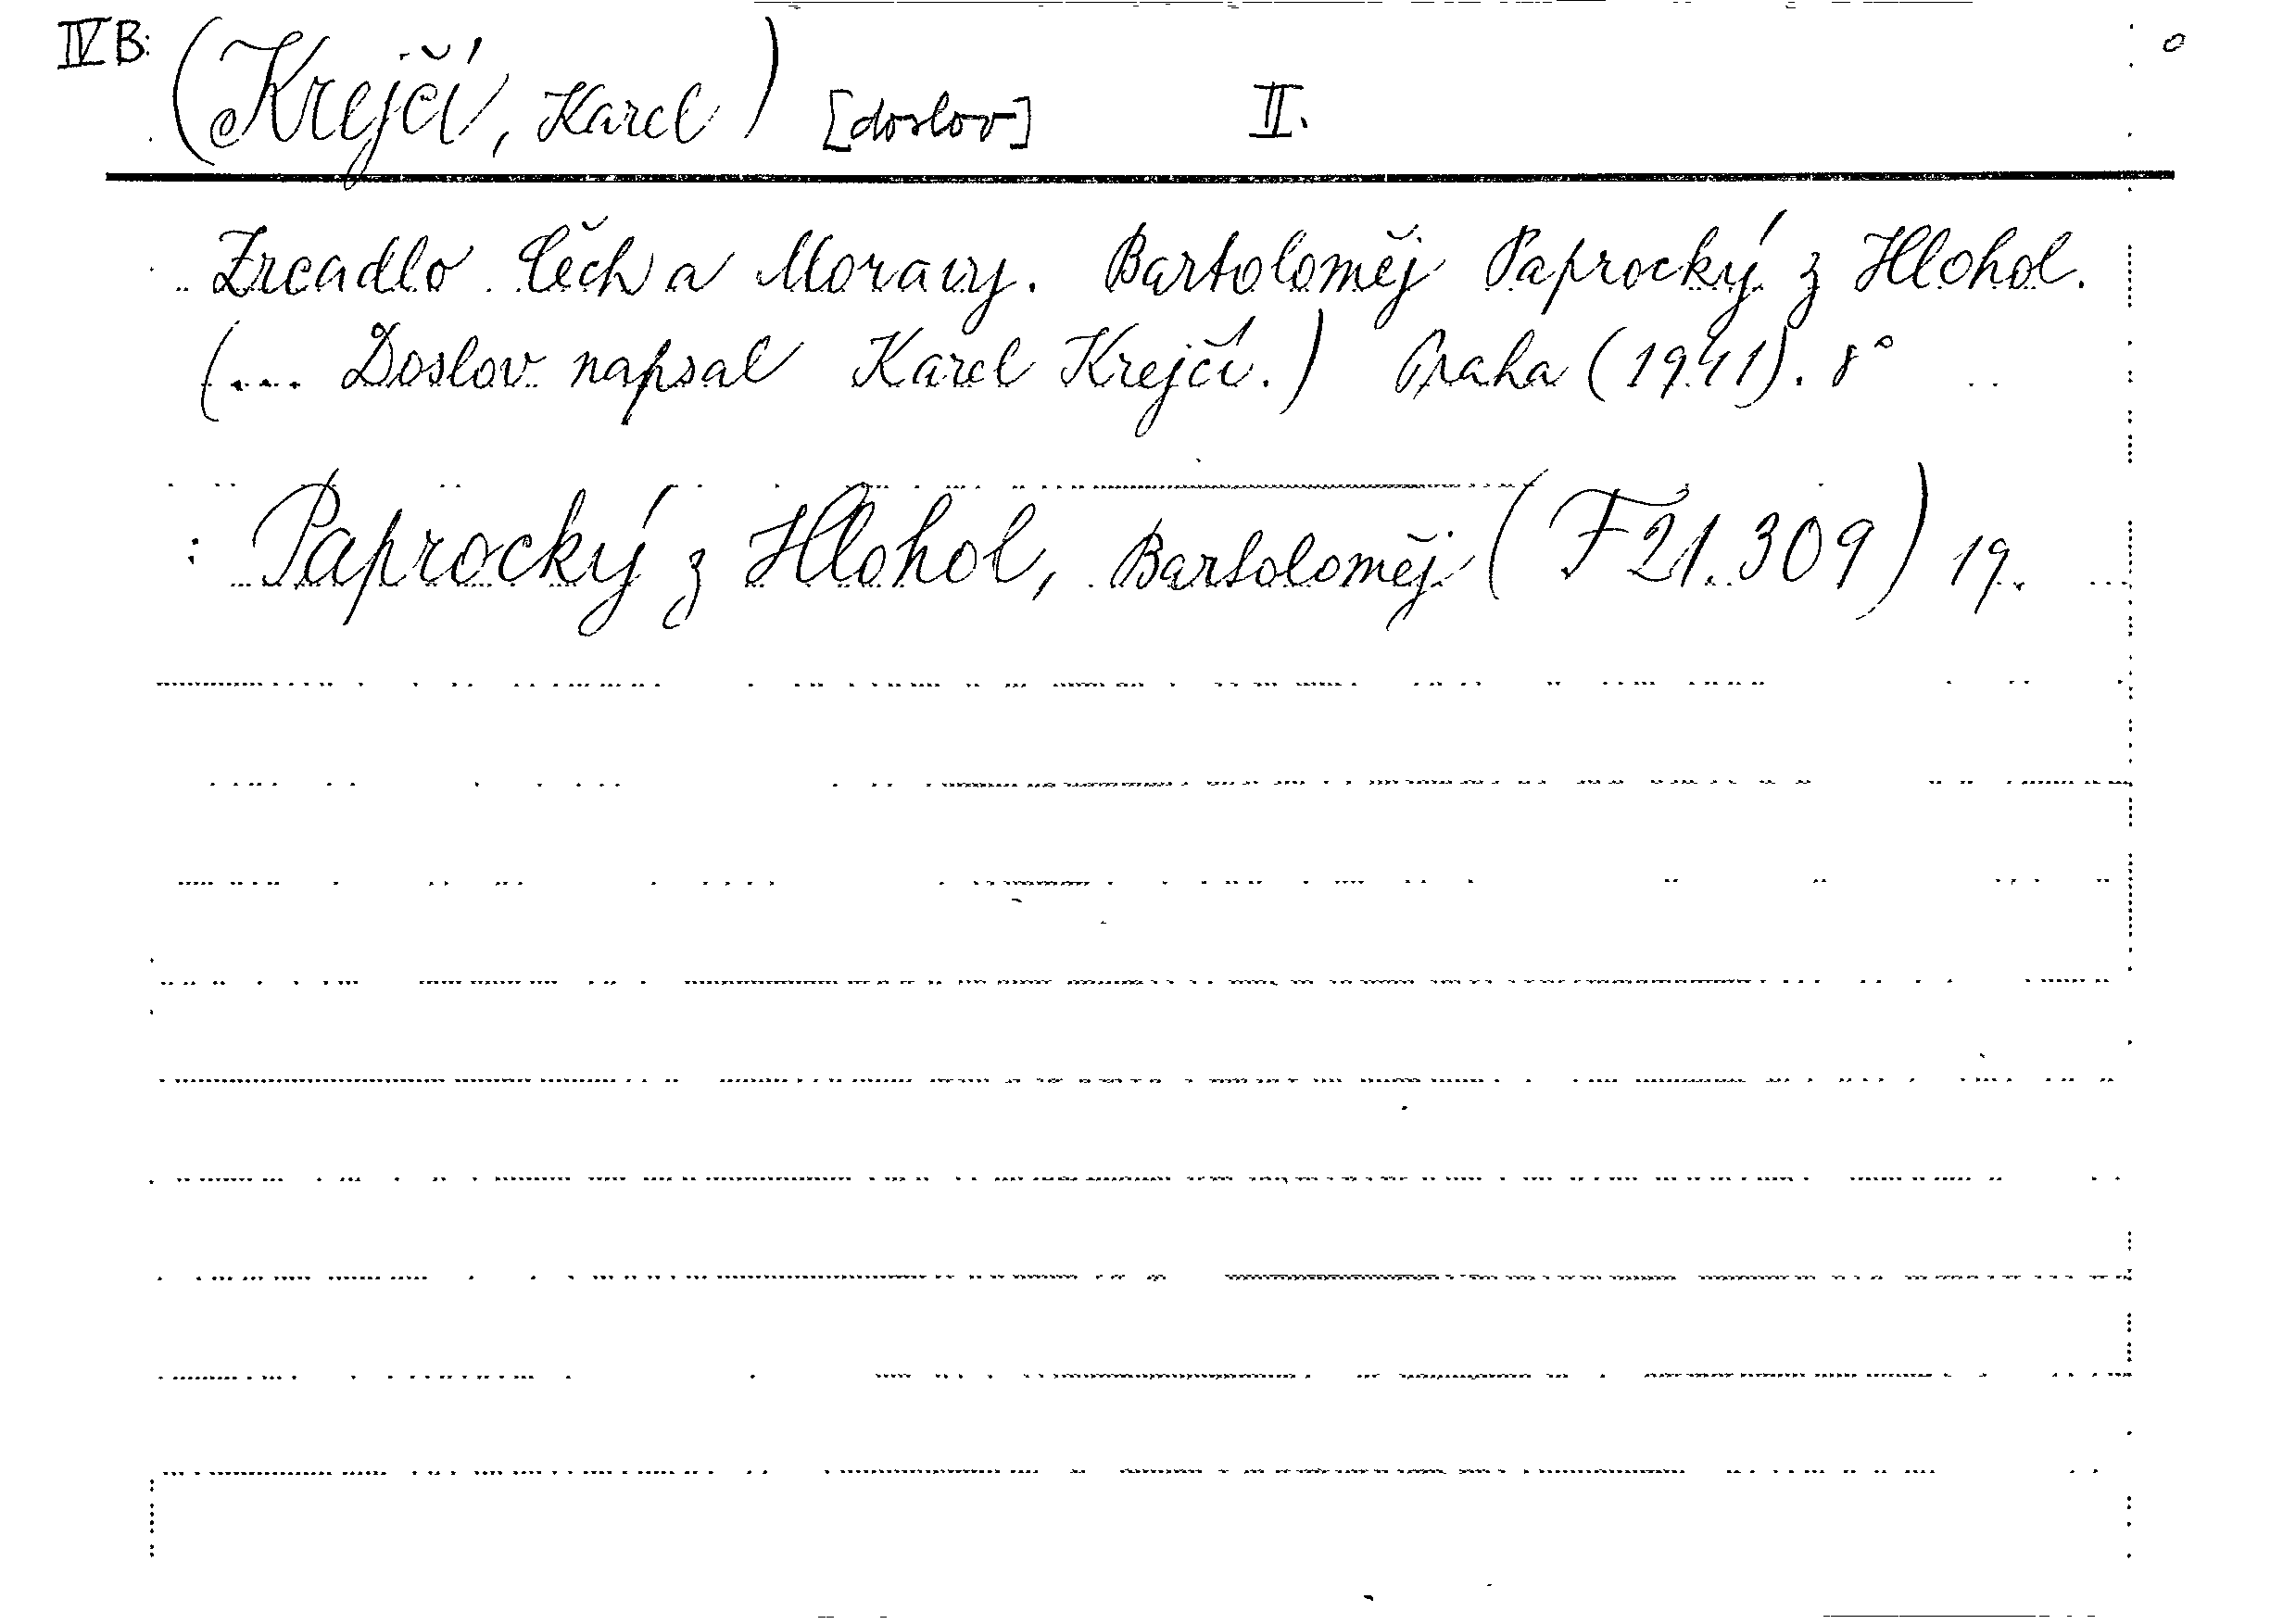 IVB: (Krejčí, Karel) [doslov] II.
Zrcadlo Čech a Moravy. Bartoloměj Paprocký z Hlohol.
(... Doslov napsal Karel Krejčí.) Praha (1941). 8°
: Paprocký z Hlohol, Bartoloměj (F 21.309) 19.